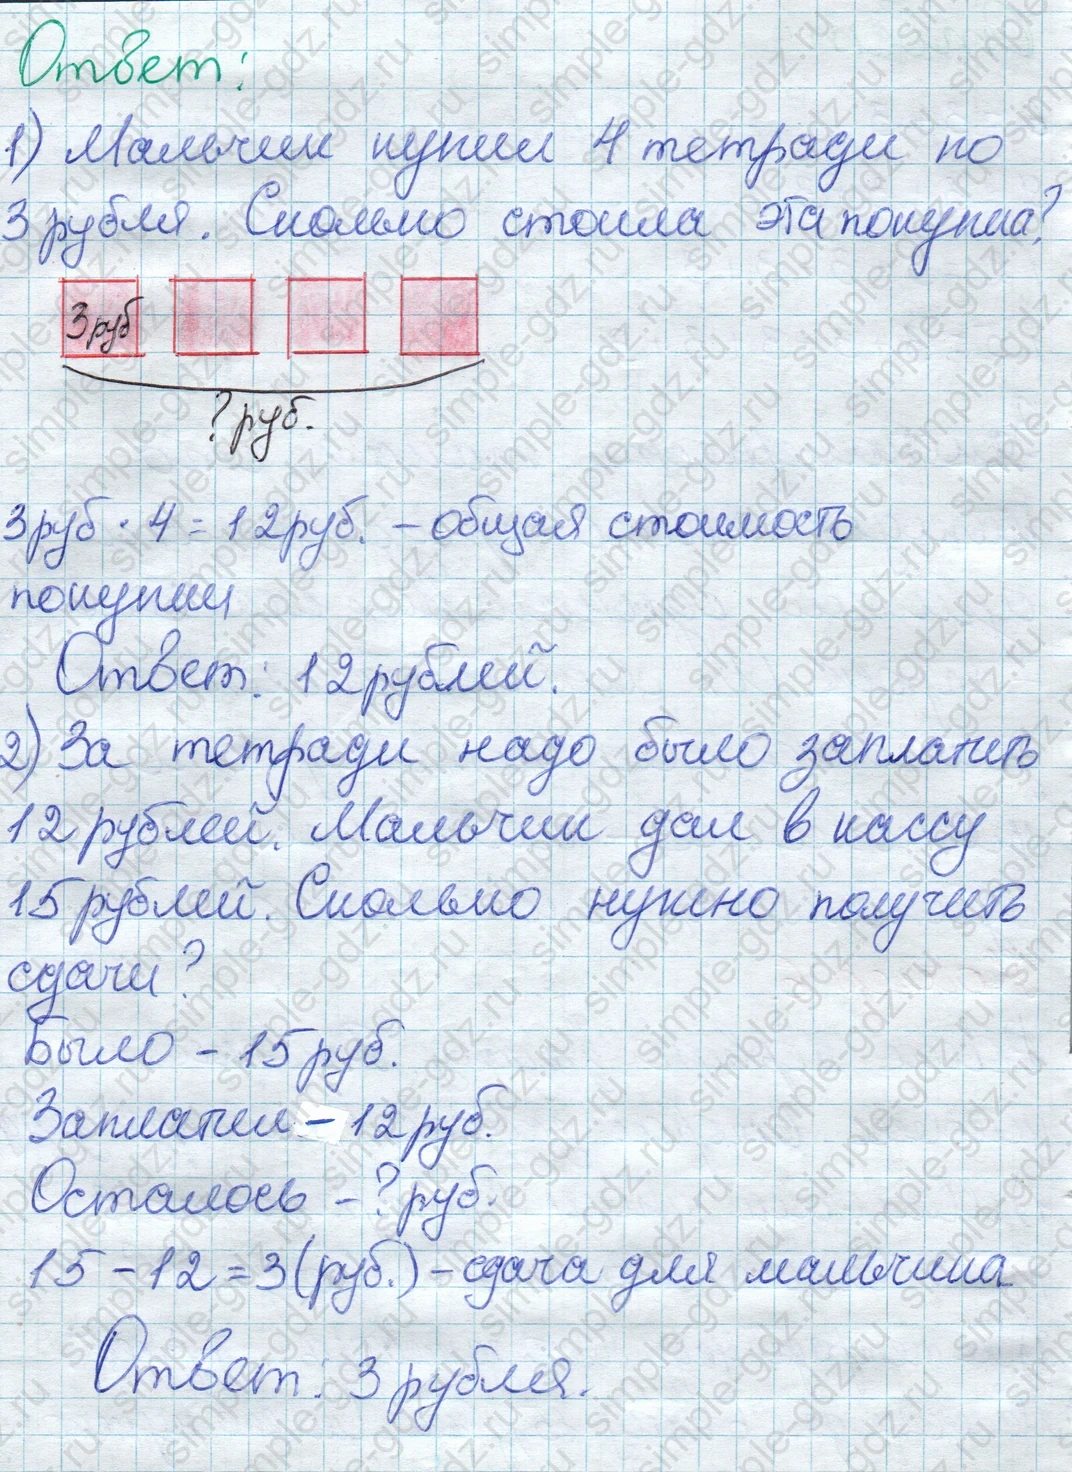 Ответ:
1) Мальчик купил 4 тетради по
3 рубля. Сколько стоила эта покупка?
3 руб
? руб.
3 руб · 4 = 12 руб. – общая стоимость
покупки
Ответ: 12 рублей.
2) За тетради надо было заплатить
12 рублей. Мальчик дал в кассу
15 рублей. Сколько нужно получить
сдачи?
Было – 15 руб.
Заплатил – 12 руб.
Осталось – ? руб.
15 – 12 = 3 (руб.) – сдача для мальчика
Ответ: 3 рубля.
simple-gdz.ru